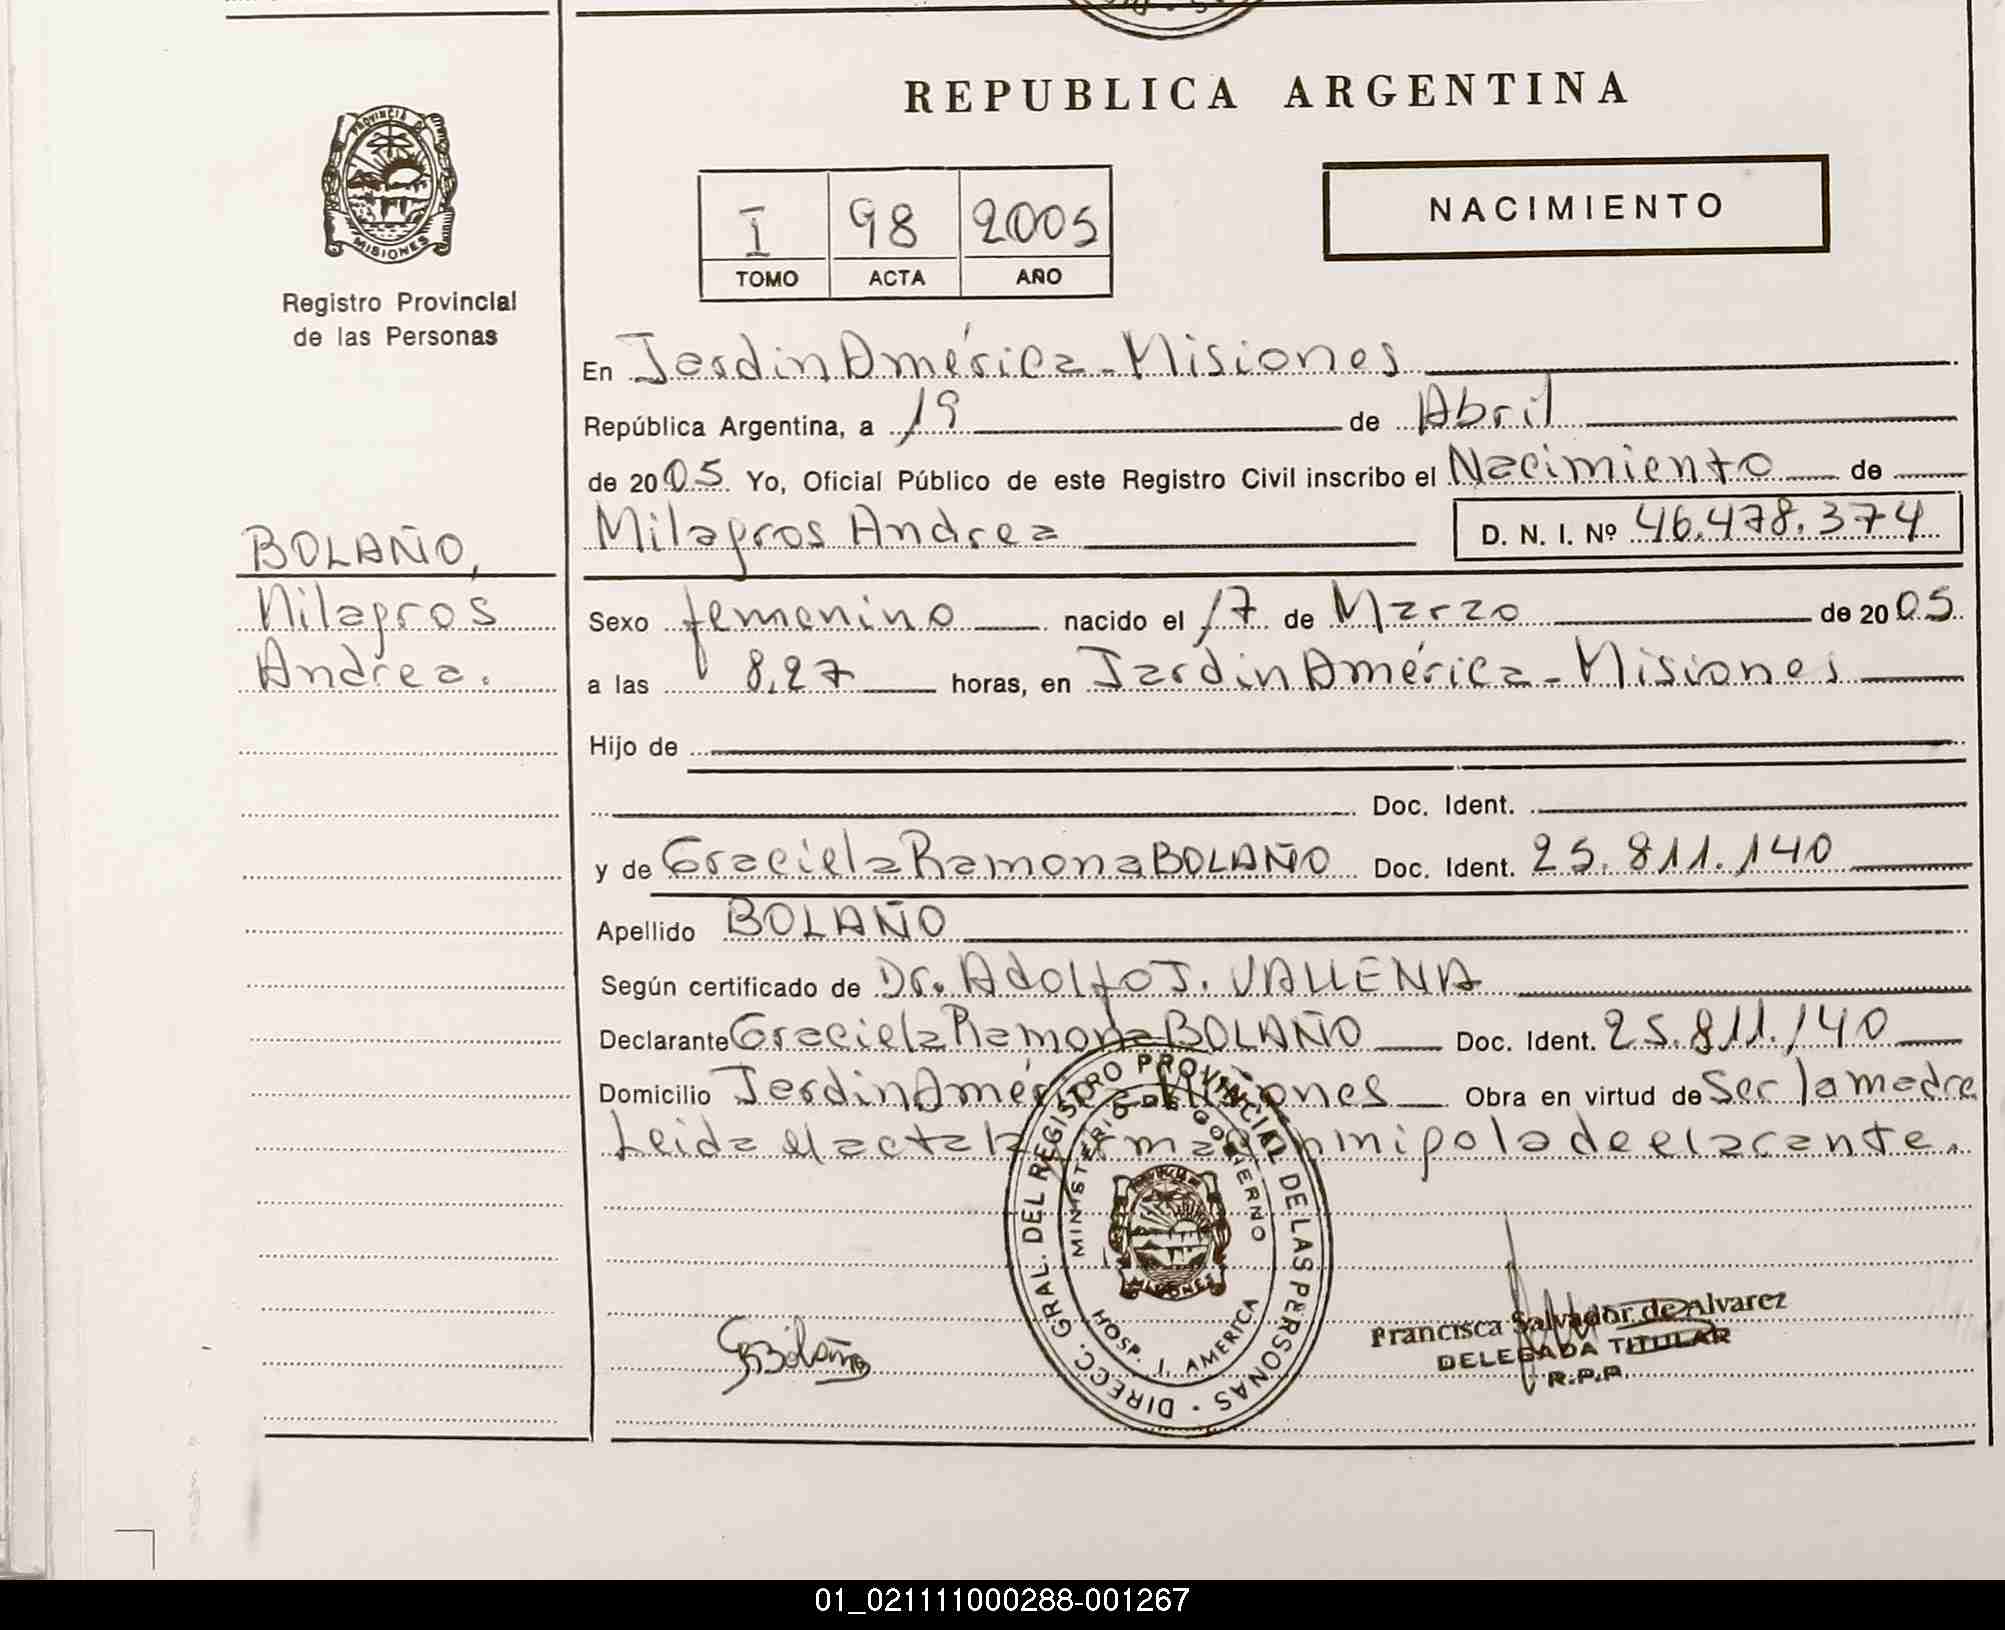 REPUBLICA ARGENTINA
PROVINCIA DE
MISIONES
Registro Provincial
de las Personas
I 98 2005
TOMO ACTA AÑO
NACIMIENTO
En Jardin América - Misiones
República Argentina, a 19 de Abril
de 2005 Yo, Oficial Público de este Registro Civil inscribo el Nacimiento de
Milagros Andrea D. N. I. Nº 46.478.374
BOLAÑO,
Milagros
Andrea.
Sexo femenino nacido el 17 de Marzo de 2005
a las 8,27 horas, en Jardin América - Misiones
Hijo de
Doc. Ident.
y de Graciela Ramona BOLAÑO Doc. Ident. 25.811.140
Apellido BOLAÑO
Según certificado de Dr. Adolfo J. VALLENA
Declarante Graciela Ramona BOLAÑO Doc. Ident. 25.811.140
Domicilio Jardin América - Misiones Obra en virtud de Ser la madre
Leida el acta la firma conmigo la declarante.
DIRECC. GRAL. DEL REGISTRO PROVINCIAL DE LAS PERSONAS
MINISTERIO DE GOBIERNO
MISIONES
HOSP. J. AMERICA
GRBolaño
Francisca Salvador de Alvarez
DELEGADA TITULAR
R.P.P.
01_021111000288-001267